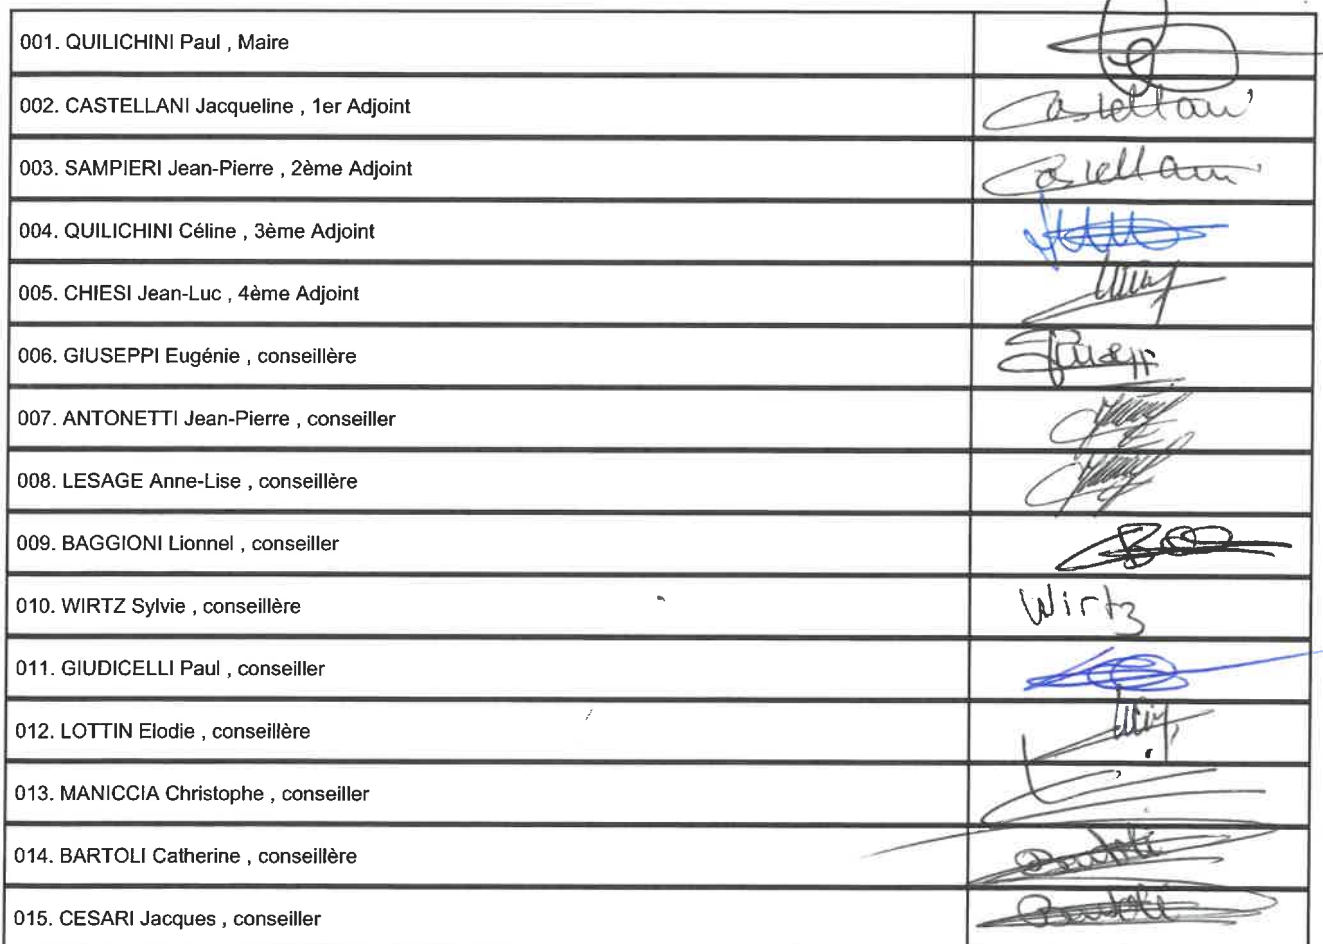 001. QUILICHINI Paul , Maire
002. CASTELLANI Jacqueline , 1er Adjoint
Castellani
003. SAMPIERI Jean-Pierre , 2ème Adjoint
Castellani
004. QUILICHINI Céline , 3ème Adjoint
005. CHIESI Jean-Luc , 4ème Adjoint
006. GIUSEPPI Eugénie , conseillère
007. ANTONETTI Jean-Pierre , conseiller
008. LESAGE Anne-Lise , conseillère
009. BAGGIONI Lionnel , conseiller
010. WIRTZ Sylvie , conseillère
Wirtz
011. GIUDICELLI Paul , conseiller
012. LOTTIN Elodie , conseillère
013. MANICCIA Christophe , conseiller
014. BARTOLI Catherine , conseillère
Bartoli
015. CESARI Jacques , conseiller
Bartoli